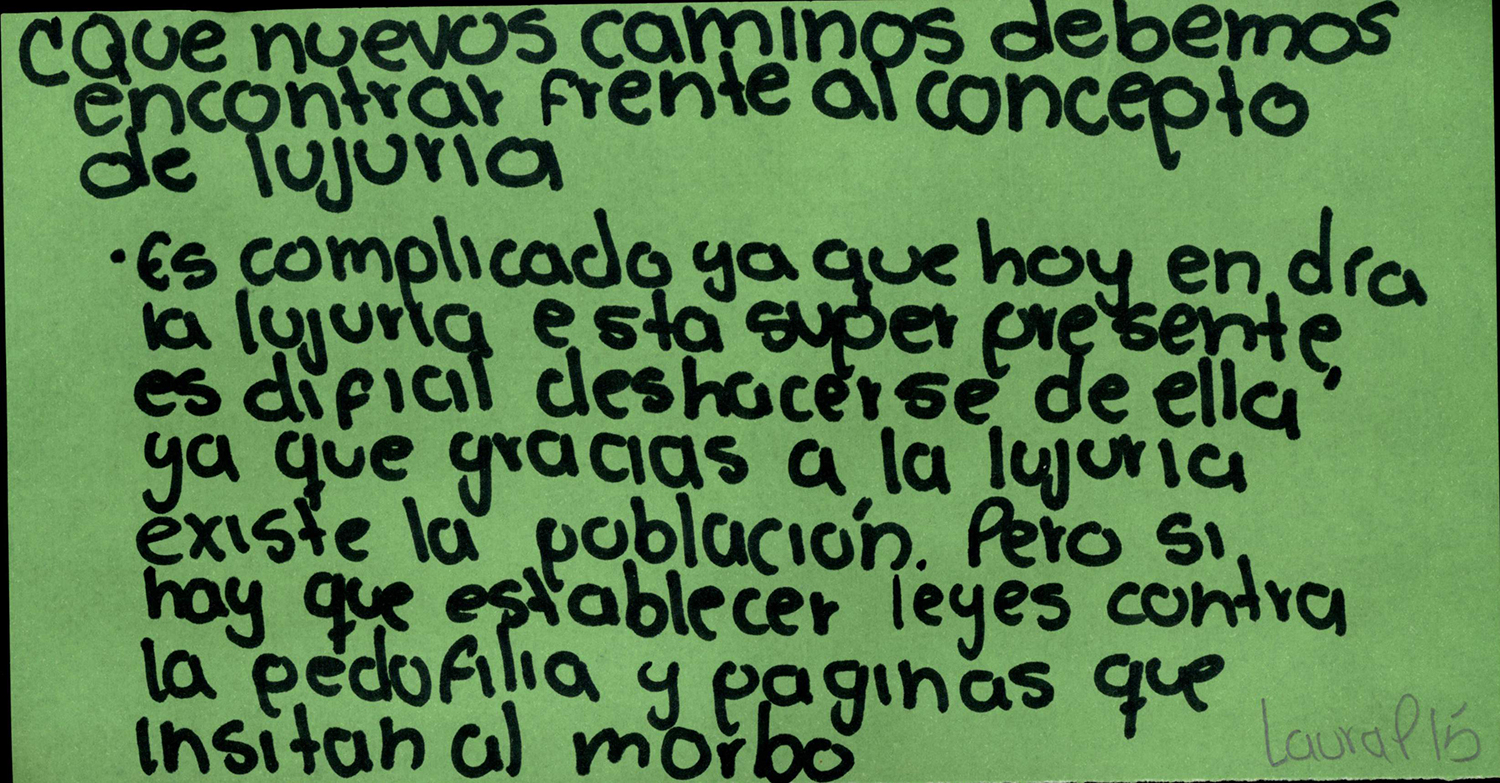 CQue nuevos caminos debemos
encontrar frente al concepto
de lujuria
·Es complicado ya que hoy en día
la lujuria esta super presente,
es dificil deshacerse de ella,
ya que gracias a la lujuria
existe la población. Pero si
hay que establecer leyes contra
la pedofilia y paginas que
insitan al morbo
Laura P 15